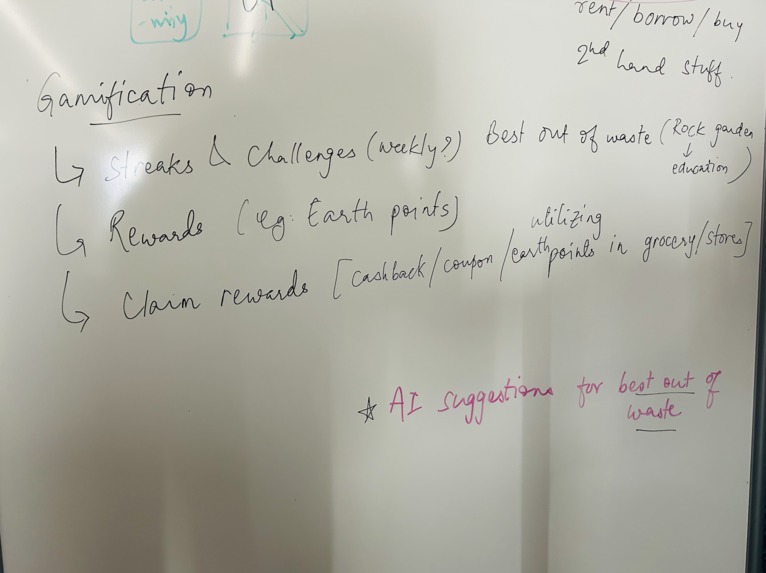 rent/borrow/buy
2nd hand stuff.
Gamification
↳ Streaks & Challenges (weekly?) Best out of waste (Rock garden
↓
education)
↳ Rewards [eg. Earth points]
↳ Claim rewards [cashback/coupon/utilizing earthpoints in grocery/stores]
☆ AI suggestions for best out of
waste